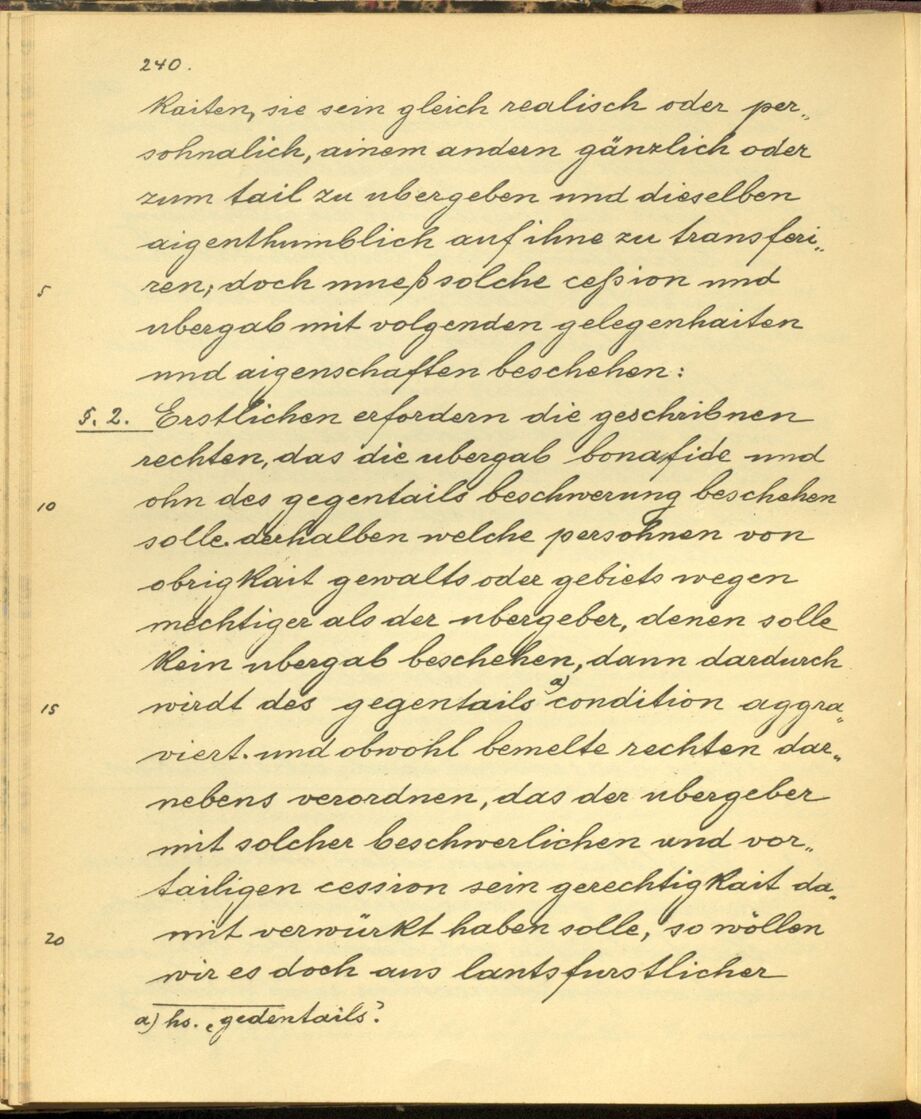 240.
kaiten, sie sein gleich realisch oder per„
sohnalich, ainem andern gänzlich oder
zum tail zu ubergeben und dieselben
aigenthumblich auf ihne zu transferi„
5 ren; doch mueß solche ceßion und
ubergab mit volgenden gelegenhaiten
und aigenschaften beschehen:
§. 2. Erstlichen erfordern die geschribnen
rechten, das die ubergab bonafide und
10 ohn des gegentails beschwerung beschehen
solle. derhalben welche persohnen von
obrigkait gewalts oder gebiets wegen
mechtiger als der ubergeber, denen solle
kein ubergab beschehen, dann dardurch
15 wirdt des gegentails a) condition aggra„
viert. und obwohl bemelte rechten dar„
nebens verordnen, das der ubergeber
mit solcher beschwerlichen und vor„
tailigen cession sein gerechtigkait da„
20 mit verwürkt haben solle, so wöllen
wir es doch aus lantsfurstlicher
a) hs. „gedentails".